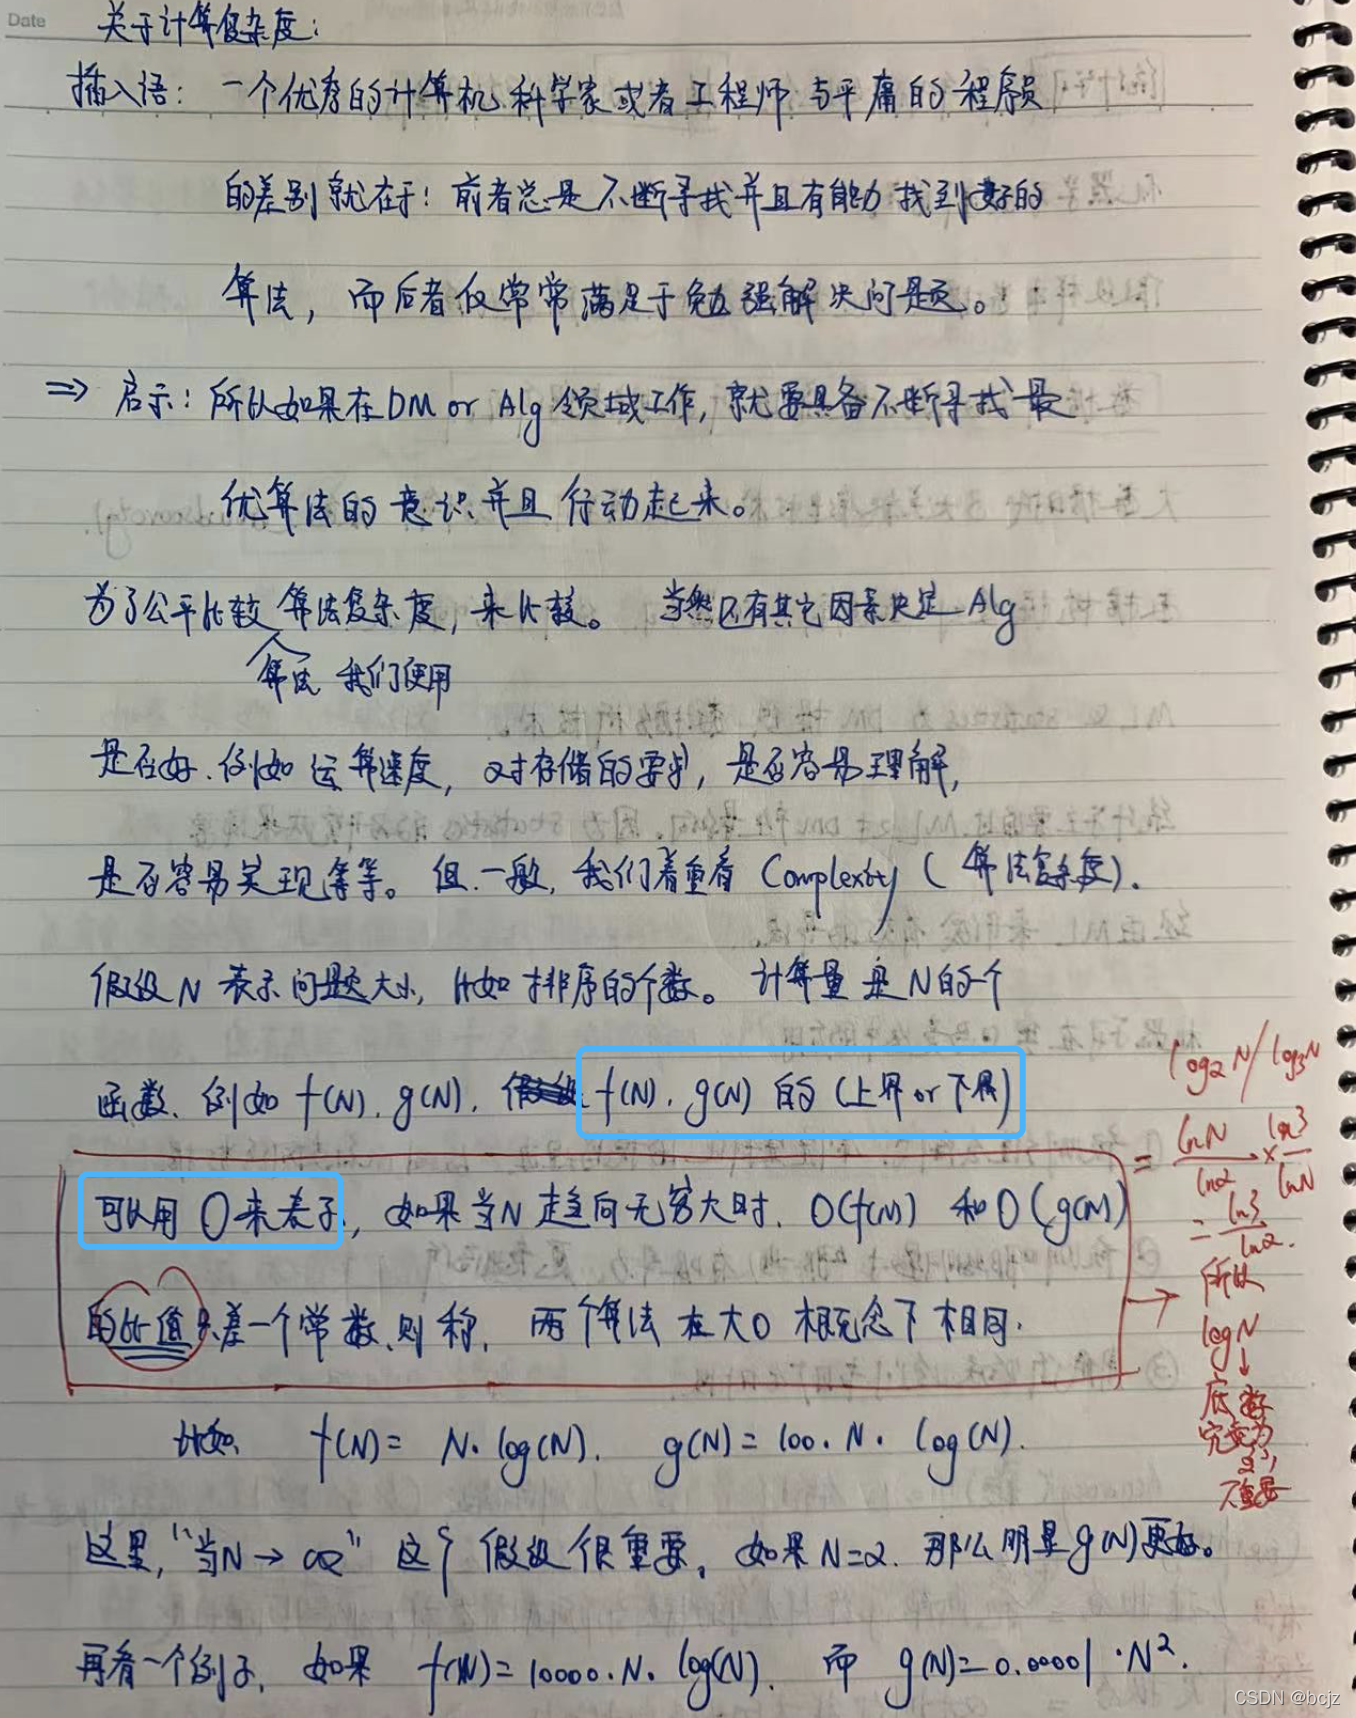 Date
关于计算复杂度:
插入语: 一个优秀的计算机科学家或者工程师与平庸的程序员
的差别就在于: 前者总是不断寻找并且有能力找到好的
算法, 而后者仅常常满足于勉强解决问题。
⇒ 启示: 所以如果在DM or Alg 领域工作, 就要具备不断寻找最
优算法的意识并且行动起来。
为了公平比较算法复杂度, 来比较。 当然还有其它因素决定Alg
算法 我们使用
是否好. 例如运算速度, 对存储的要求, 是否容易理解,
是否容易实现等等。 但一般, 我们着重看 Complexity ( 算法复杂度).
假设N表示问题大小, 比如排序的个数。 计算量是N的一个
函数. 例如 f(N). g(N). f(N). g(N) 的 (上界 or 下界)
可以用 O来表示, 如果当N趋向无穷大时. O(f(N)) 和 O(g(N))
的比值只差一个常数, 则称, 两个算法在大O概念下相同.
比如 f(N) = N. log(N). g(N) = 100. N. log(N).
这里, "当N → ∞" 这个假设很重要, 如果N=2. 那么明显g(N)更好。
再看一个例子, 如果 f(N)=10000.N. log(N). 而 g(N)=0.00001 ·N².
log₂N/log₃N
= lnN/ln2 × ln3/lnN
= ln3/ln2.
所以
logN
↓
底数
究竟为
2,
不重要
CSDN @bcjz